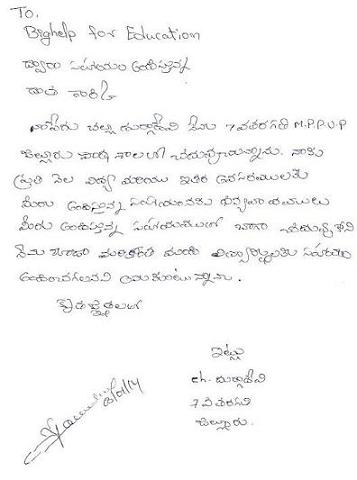 To,
Bighelp for Education
ద్వారా సహాయం అందిస్తున్న
దాత గారికి
నా పేరు చల్లా దుర్గాదేవి నేను 7వ తరగతి M.P.P.U.P
పాఠశాలలో చదువుచున్నాను. నాకు
ప్రతి నెల విద్య మరియు ఇతర అవసరములకు
మీరు అందిస్తున్న సహాయమునకు ధన్యవాదములు
మీరు అందిస్తున్న సహాయముతో బాగా చదువుకొని
నేను కూడా మరికొంత మంది విద్యార్థులకు సహాయం
అందించగలనని అనుకుంటున్నాను.
కృతజ్ఞతలతో
ఇట్లు
ch. దుర్గాదేవి
7వ తరగతి